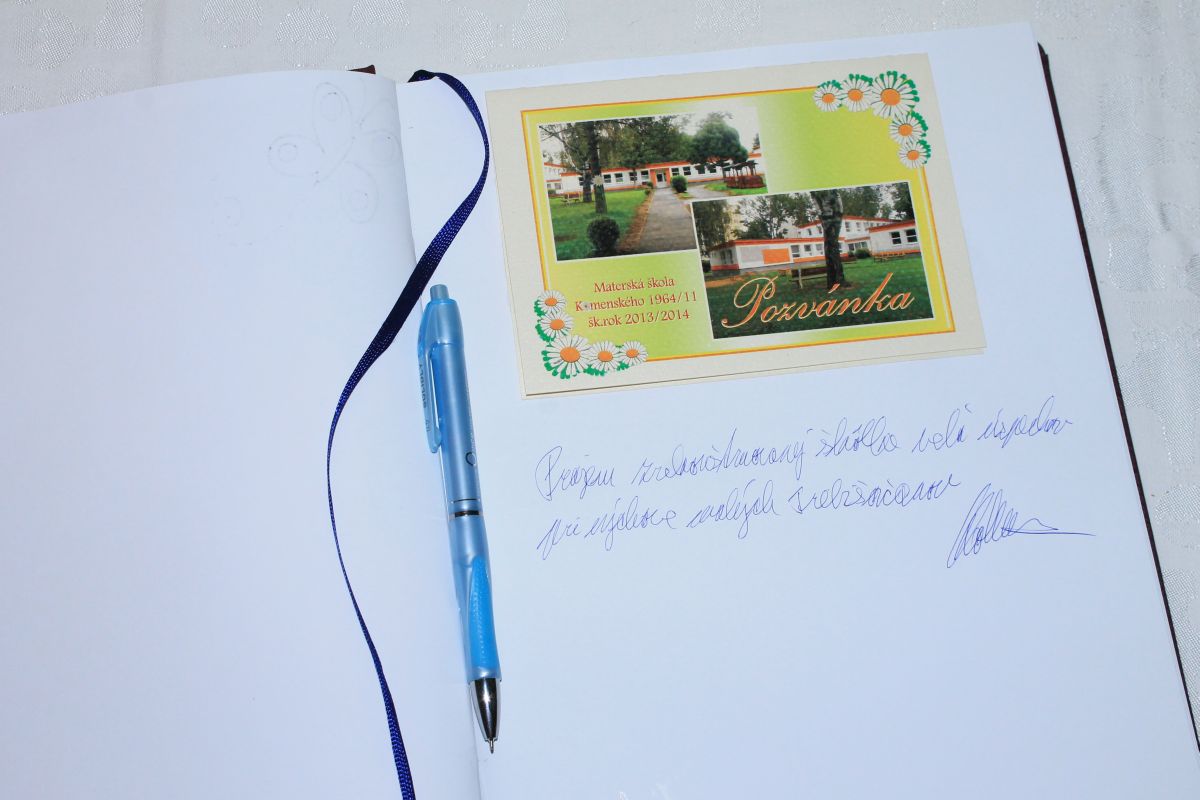 Materská škola
Komenského 1964/11
šk.rok 2013/2014
Pozvánka
Prajem zrekonštruovanej škôlke veľa úspechov
pri výchove malých Trebišovčanov